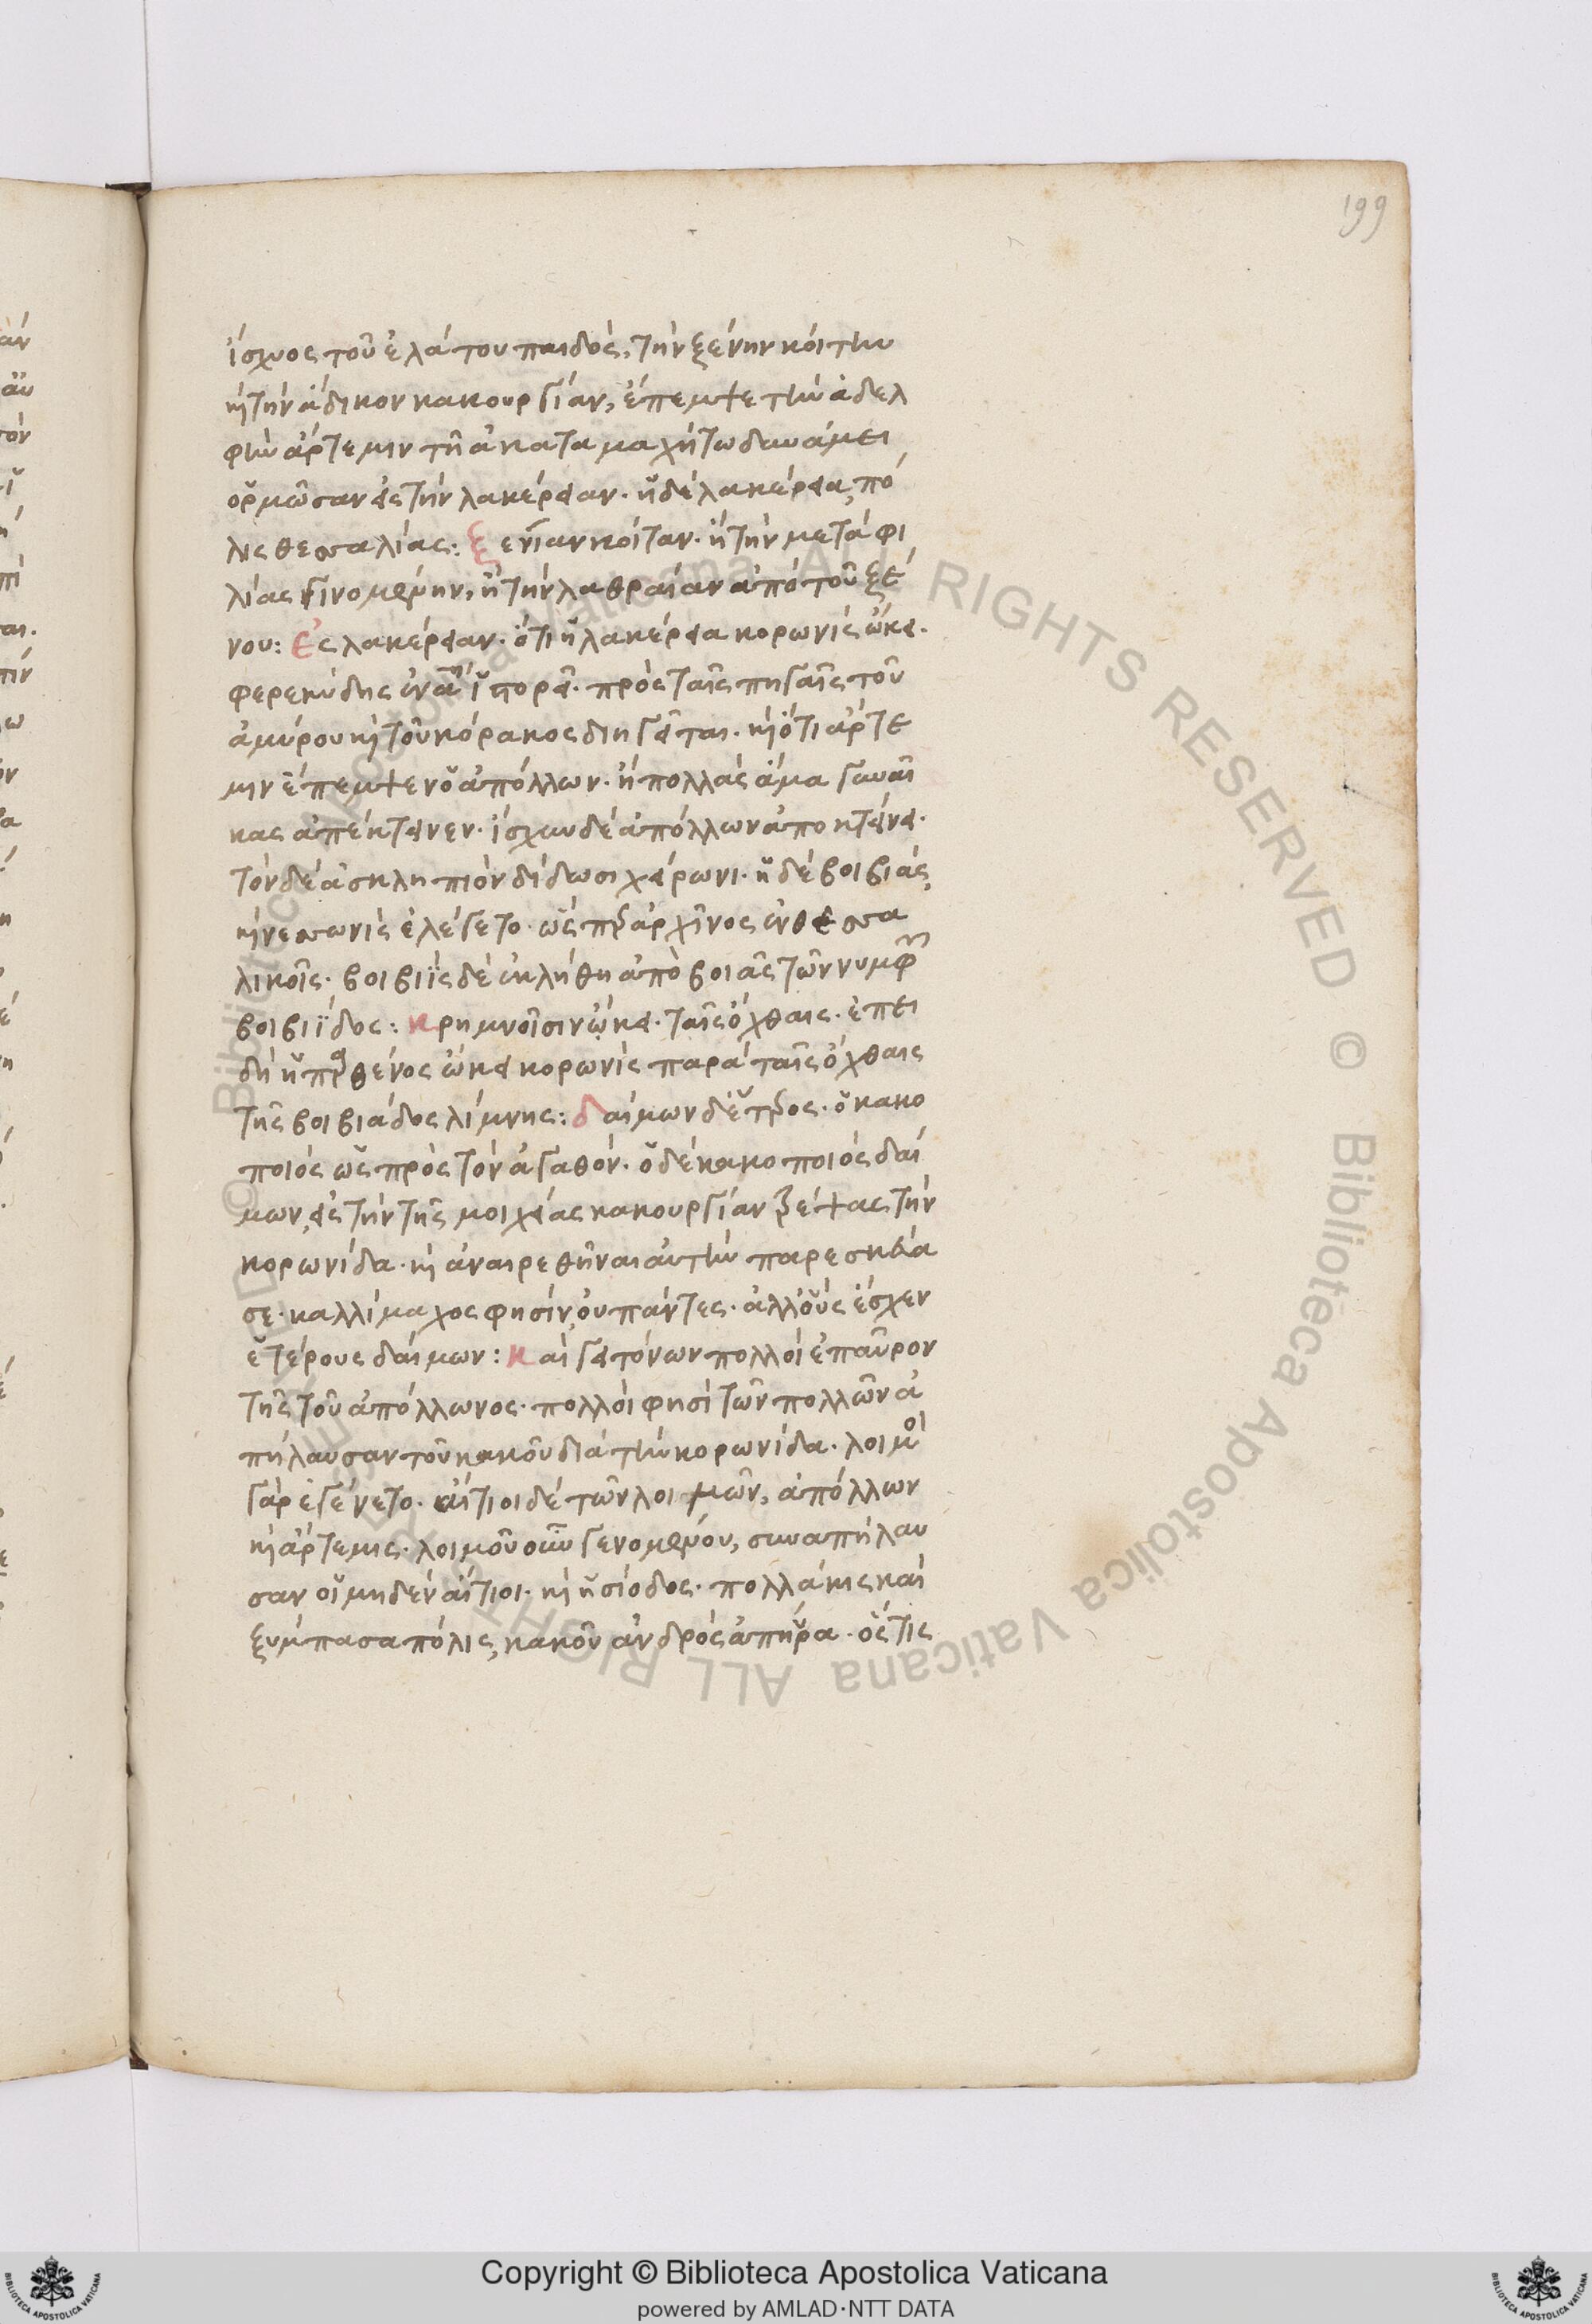 199
ἴσχυος τοῦ ἐλάτου παιδὸς, τὴν ξένην κοίτην
κὶ τὴν ἄδικον κακουργίαν, ἔπεμψε τὴν ἀδελ
φὴν ἄρτεμιν τῆ ἀκαταμαχήτω δυνάμει
ὁρμῶσαν εἰς τὴν λακέρειαν. ἡ δὲ λακέρεια, πό
λις θεσσαλίας: ξενίαν κοίταν. ἢ τὴν μετὰ φι
λίας γινομένην, ἢ τὴν λαθραίαν ἀπὸ τοῦ ξέ
νου: ἐς λακέρειαν. ὅτι ἡ λακέρεια κορωνὶς ὤκει.
φερεκύδης ἐν ἱστορεῖ. πρὸς ταῖς πηγαῖς τοῦ
ἀμύρου κὶ τοῦ κόρακος διηγεῖται. κὶ ὅτι ἄρτε
μιν ἔπεμψεν ὁ ἀπόλλων. ἢ πολλὰς ἅμα γυναῖ
κας ἀπέκτεινεν. ἴσχυν δὲ ἀπόλλων ἀποκτείνει.
τὸν δὲ ἀσκληπιὸν δίδωσι χείρωνι. ἡ δὲ βοιβιὰς,
κὶ νεσσωνὶς ἐλέγετο. ὥς περ ἀρχῖνος ἐν θεσσα
λικοῖς. βοιβιῒς δὲ ἐκλήθη ἀπὸ βοιᾶς τῶν νυμφῶν
βοιβιΐδος: κρημνοῖσιν ὤκει. ταῖς ὄχθαις. ἐπει
δὴ ἡ παρθένος ὤκει κορωνὶς παρὰ ταῖς ὄχθαις
τῆς βοιβιάδος λίμνης: δαίμων δ' ἕτερος. ὁ κακο
ποιὸς ὡς πρὸς τὸν ἀγαθόν. ὁ δὲ κακοποιὸς δαί
μων, εἰς τὴν τῆς μοιχείας κακουργίαν τρέψας τὴν
κορωνίδα. κὶ ἀναιρεθῆναι αὐτὴν παρεσκεύα
σε. καλλίμαχος φησὶν, οὐ πάντες. ἀλλ' οὓς ἔσχεν
ἑτέρους δαίμων: καὶ γειτόνων πολλοὶ ἐπαῦρον
τῆς τοῦ ἀπόλλωνος. πολλοὶ φησὶ τῶν πολλῶν ἀ
πήλαυσαν τοῦ κακοῦ διὰ τὴν κορωνίδα. λοιμοὶ
γὰρ ἐγένετο. αἴτιοι δὲ τῶν λοιμῶν, ἀπόλλων
κὶ ἄρτεμις. λοιμοῦ οὖν γενομένου, συναπήλαυ
σαν οἱ μηδὲν αἴτιοι. κὶ ἡσίοδος. πολλάκις καὶ
ξύμπασα πόλις, κακοῦ ἀνδρὸς ἀπηύρα. ὅς τις
© Biblioteca Apostolica Vaticana ALL RIGHTS RESERVED © Biblioteca Apostolica Vaticana ALL RIGHTS RESERVED
Copyright © Biblioteca Apostolica Vaticana
powered by AMLAD·NTT DATA